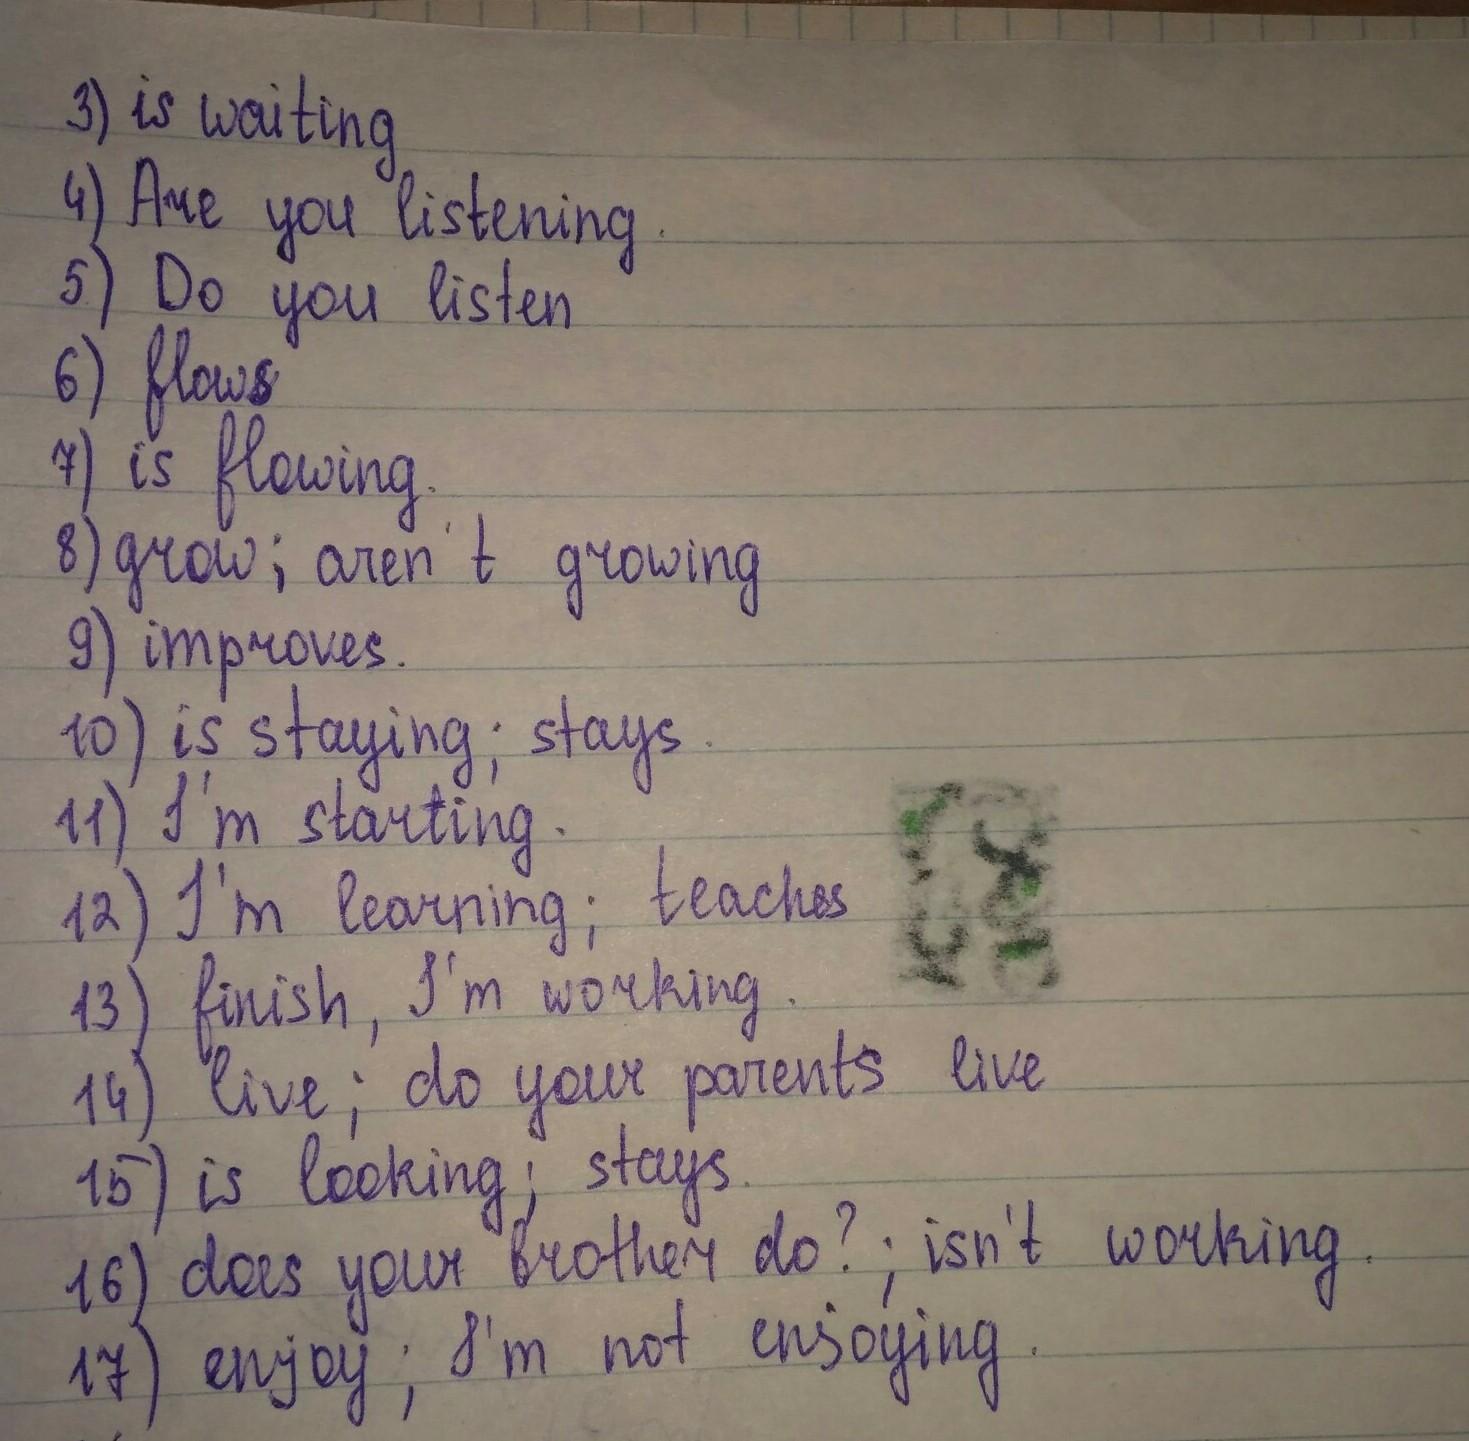 3) is waiting
4) Are you listening.
5) Do you listen
6) flows
7) is flowing.
8) grow; aren't growing
9) improves.
10) is staying; stays.
11) I'm starting.
12) I'm learning; teaches
13) finish, I'm working.
14) live; do your parents live
15) is looking; stays.
16) does your brother do?; isn't working.
17) enjoy; I'm not enjoying.